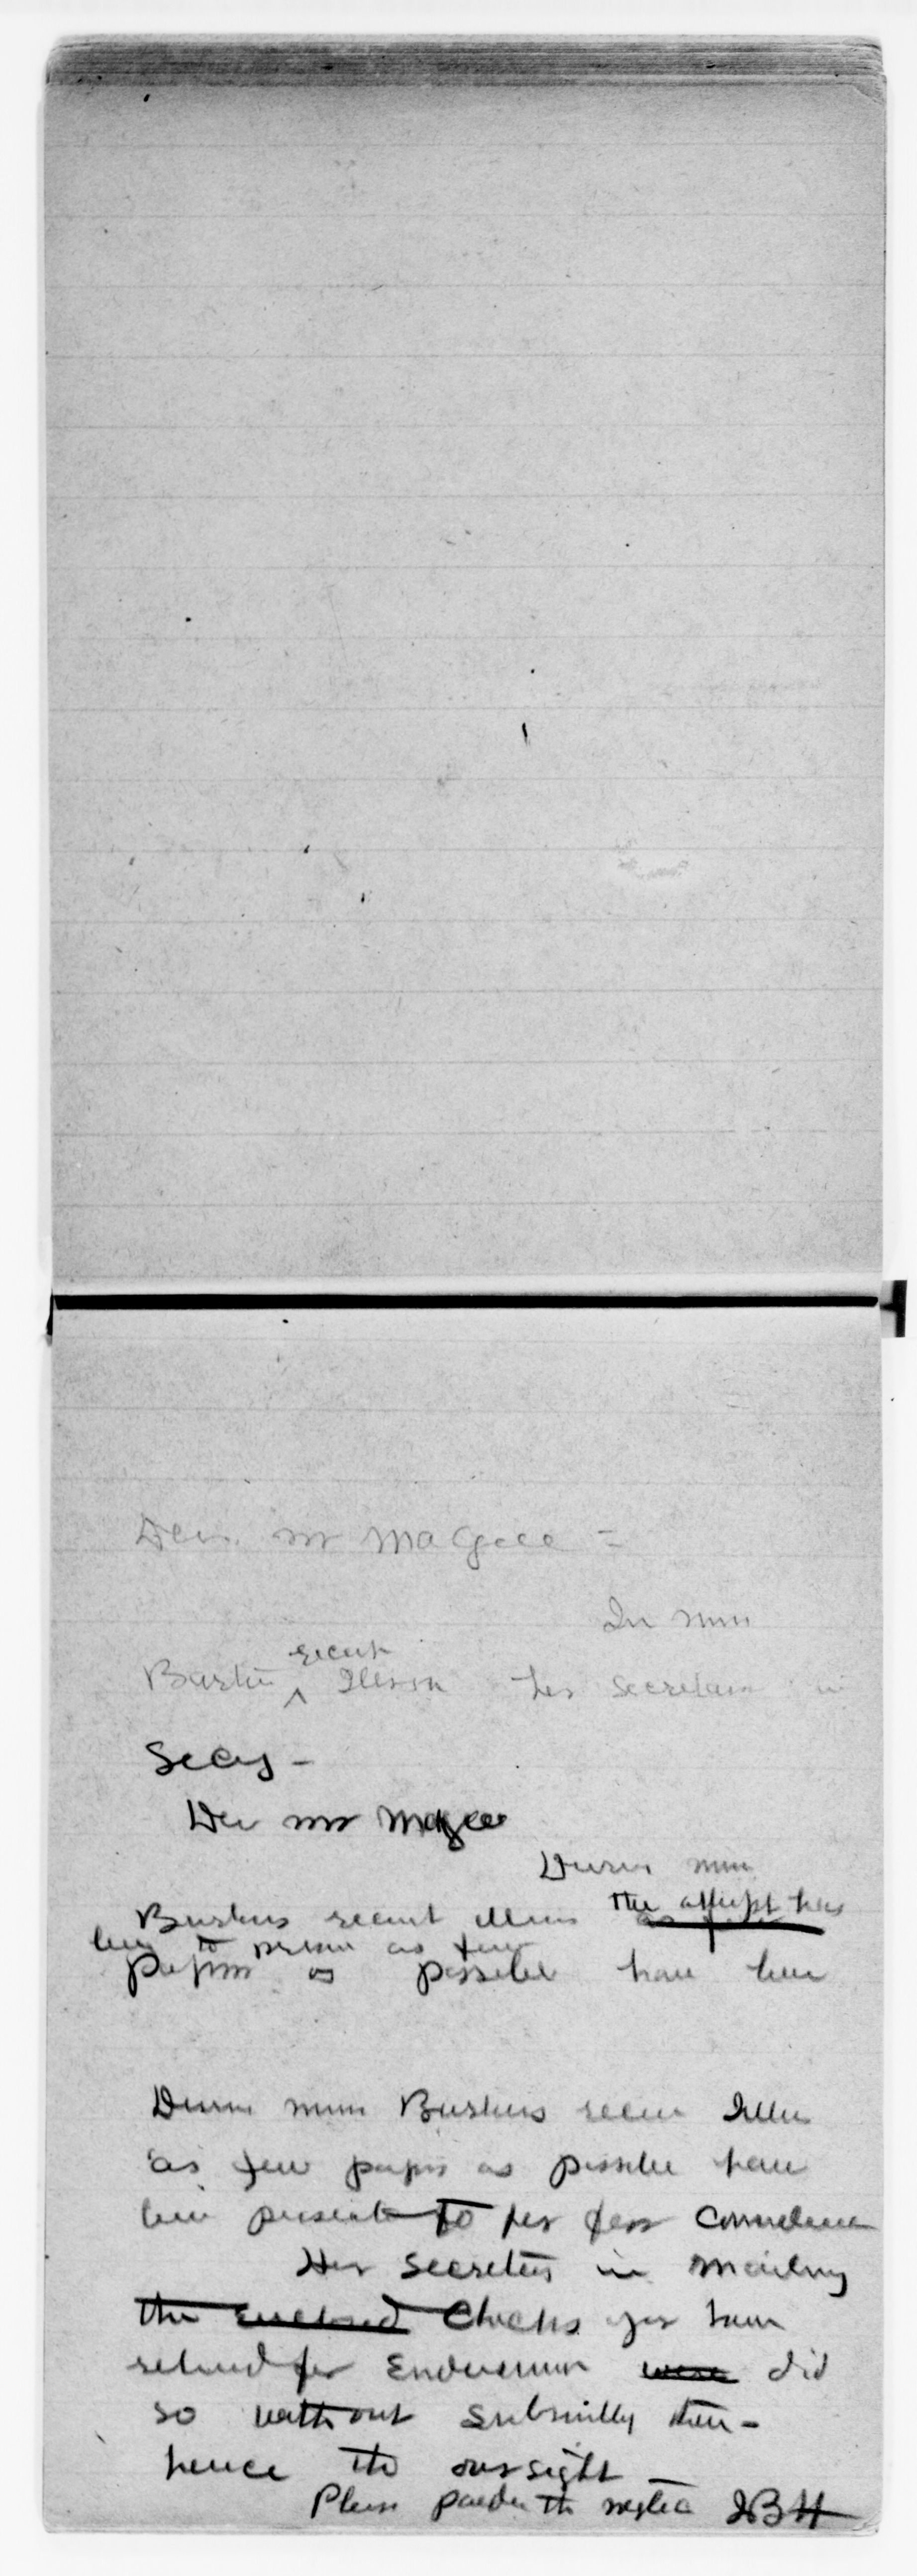 Dear Mr Magee =
In Miss
Bartons recent Illness her Secretary in
Secy -
Dear Mr Magee
During Miss
Bartons recent illness the attempt has
been to present as few
papers as possible have been
During Miss Bartons recent Illness
as few papers as possible have
been presented to her for consideration
Her Secretary in mailing
the enclosed Checks you have
returned for Endorsement were did
so without submitting them -
hence the oversight
Please pardon the neglect JBH